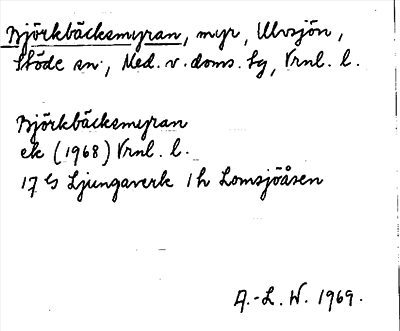 Björkbäcksmyran, myr, Ulvsjön,
Stöde sn, Med. v. doms. tg, Vrnl. l.
Björkbäcksmyran
ek (1968) Vrnl. l.
17 G Ljungaverk 1 h Lomsjöåsen
A.-L. W. 1969.